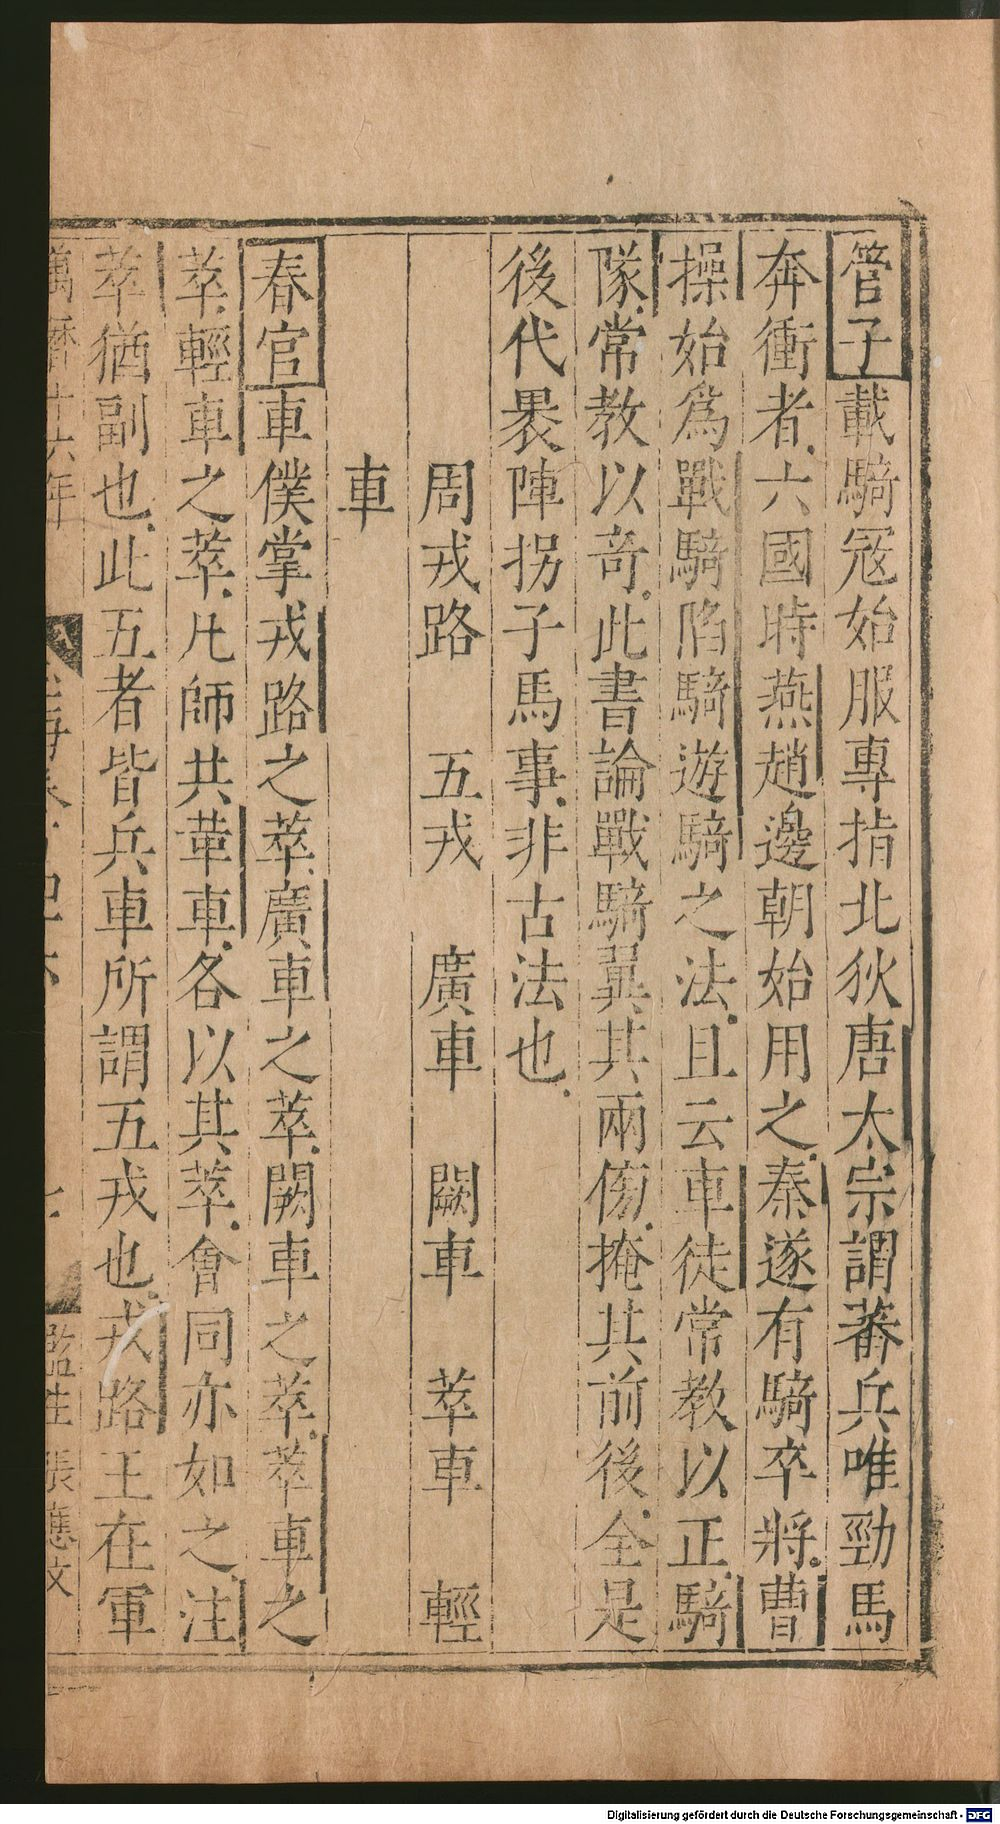 管子載騎冦始服專指北狄唐太宗謂蕃兵唯勁馬
奔衝者六國時燕趙邊朝始用之秦遂有騎卒將曹
操始爲戰騎陷騎遊騎之法且云車徒常教以正騎
隊常教以奇此書論戰騎翼其兩傍掩其前後全是
後代褁陣拐子馬事非古法也
周戎路 五戎 廣車 闕車 萃車 輕
車
春官車僕掌戎路之萃廣車之萃闕車之萃萃車之
萃輕車之萃凡師共革車各以其萃會同亦如之注
萃猶副也此五者皆兵車所謂五戎也戎路王在軍
萬曆十六年
七
監生張應文
Digitalisierung gefördert durch die Deutsche Forschungsgemeinschaft - DFG